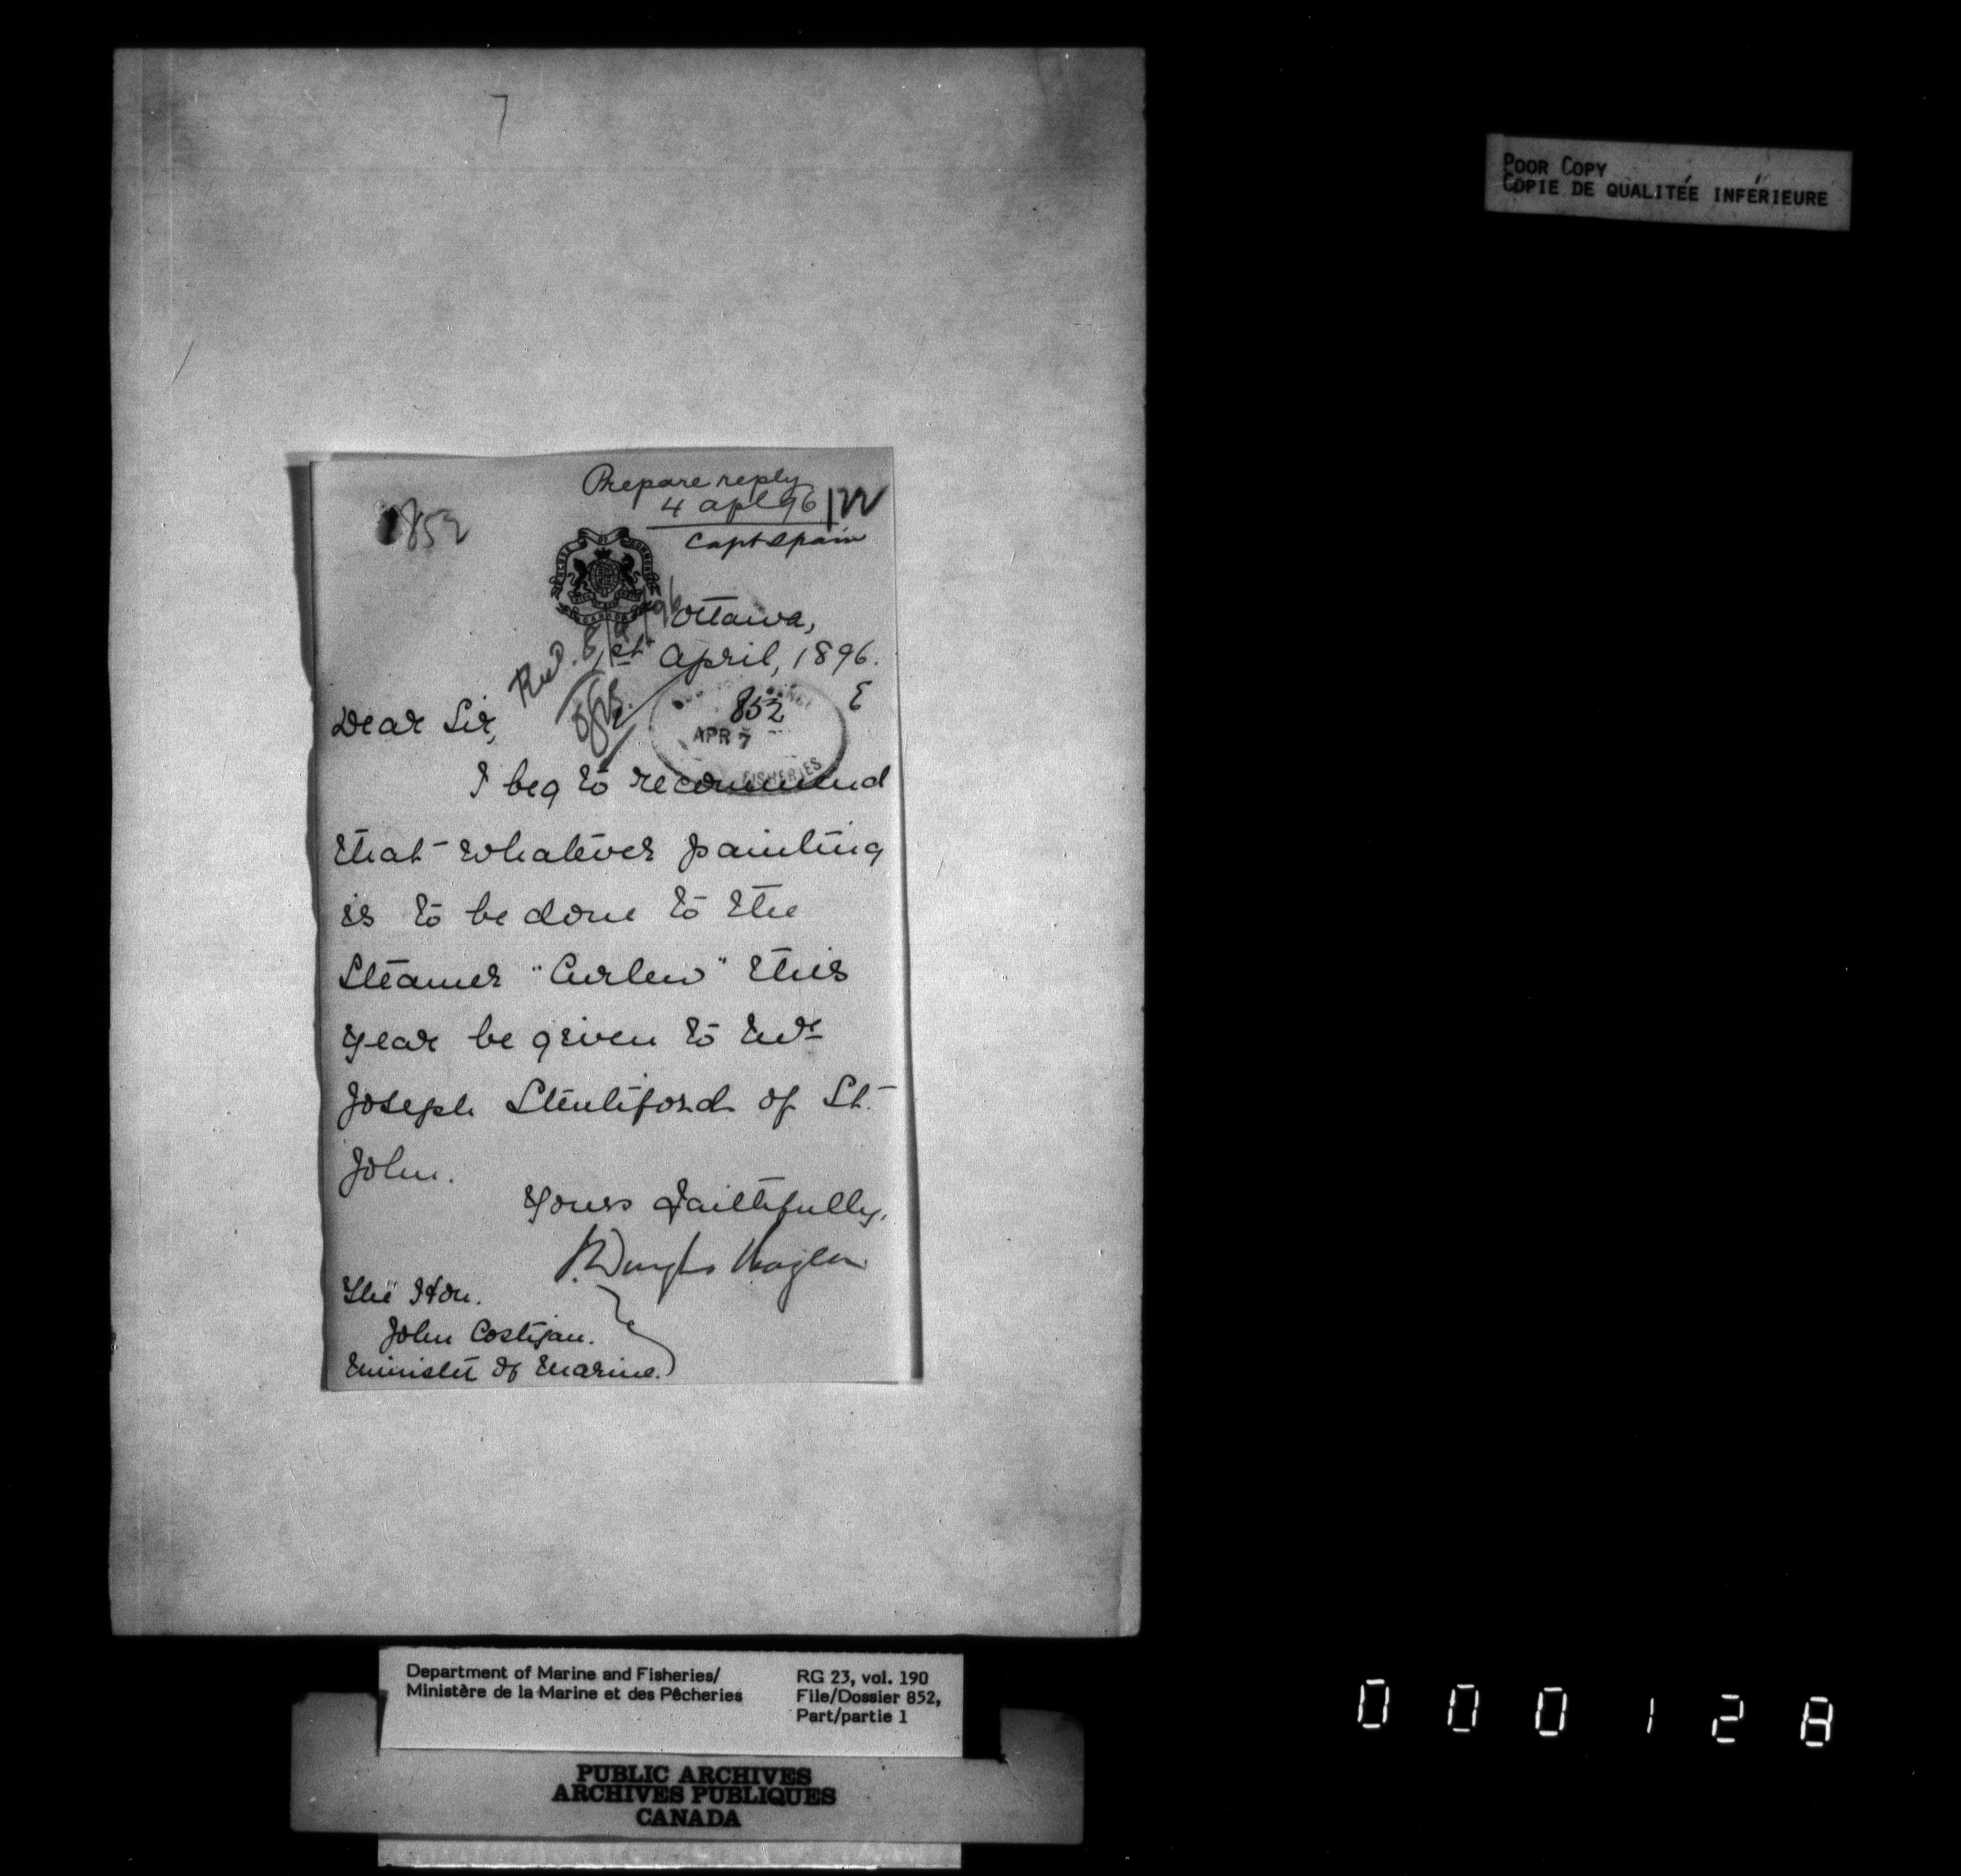 7
POOR COPY
COPIE DE QUALITÉE INFÉRIEURE
Prepare reply
4 apl 96
852
Capt Spain
HOUSE OF COMMONS
CANADA
Ottawa,
1st April, 1896.
852
APR 7
FISHERIES
Dear Sir,
I beg to recommend
that whatever painting
is to be done to the
Steamer "Curlew" this
year be given to Mr
Joseph Stentiford of St.
John.
Yours faithfully,
J. Douglas Hazen
The Hon.
John Costigan.
Minister of Marine.
Department of Marine and Fisheries/
Ministère de la Marine et des Pêcheries
RG 23, vol. 190
File/Dossier 852,
Part/partie 1
PUBLIC ARCHIVES
ARCHIVES PUBLIQUES
CANADA
000128